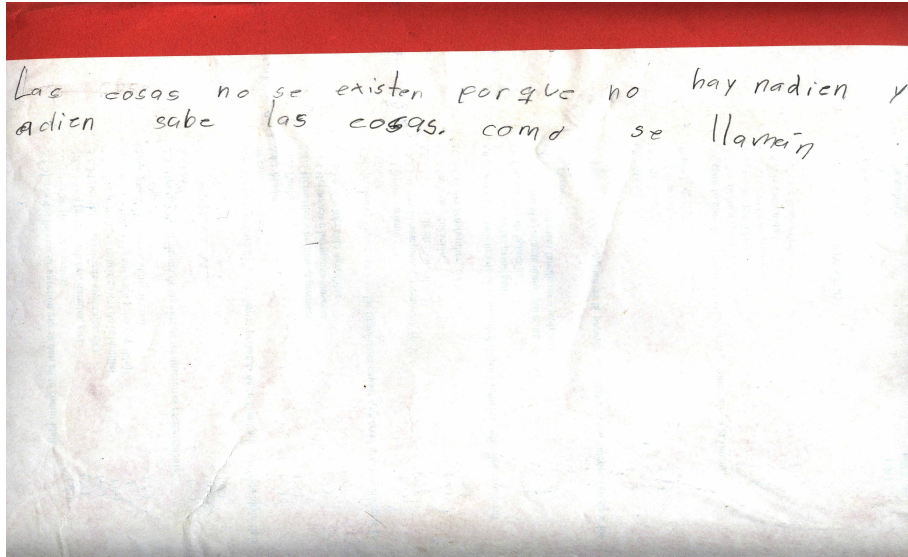 Las cosas no se existen porque no hay nadien y
adien sabe las cosas. como se llaman